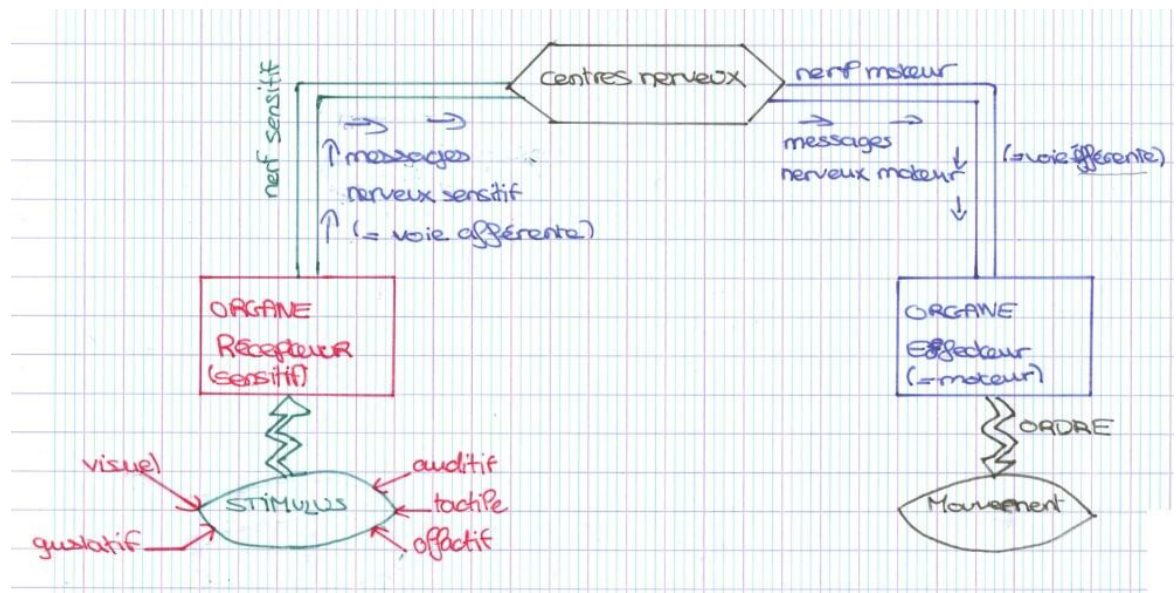 centres nerveux
nerf moteur
nerf sensitif
messages
nerveux sensitif
(= voie afférente)
messages
nerveux moteur
(= voie éfférente)
ORGANE
Récepteur
(sensitif)
ORGANE
Effecteur
(= moteur)
ORDRE
visuel
auditif
STIMULUS
tactile
gustatif
olfactif
Mouvement